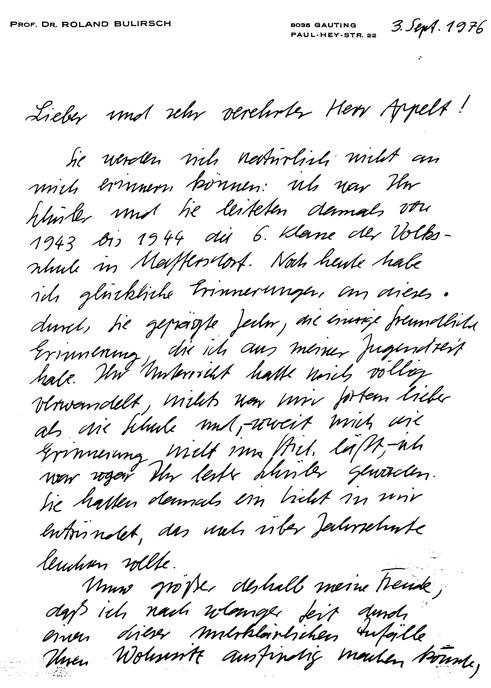 PROF. DR. ROLAND BULIRSCH
8035 GAUTING
PAUL-HEY-STR. 22
3. Sept. 1976
Lieber und sehr verehrter Herr Appelt!
Sie werden sich natürlich nicht an
mich erinnern können: ich war Ihr
Schüler und Sie leiteten damals von
1943 bis 1944 die 6. Klasse der Volks-
schule in Maffersdorf. Noch heute habe
ich glückliche Erinnerungen an dieses
durch Sie geprägte Jahr, die einzige freundliche
Erinnerung, die ich aus meiner Jugendzeit
habe. Ihr Unterricht hatte mich völlig
verwandelt, nichts war mir fortan lieber
als die Schule und, soweit mich die
Erinnerung nicht im Stich läßt, ich
war sogar Ihr bester Schüler geworden.
Sie hatten damals ein Licht in mir
entzündet, das noch über Jahrzehnte
leuchten sollte.
Umso größer deshalb meine Freude,
daß ich nach so langer Zeit durch
einen dieser unerklärlichen Zufälle
Ihren Wohnsitz ausfindig machen konnte,